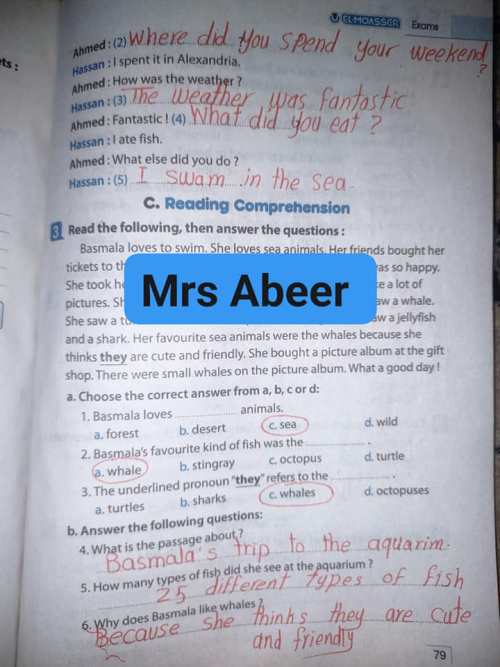 EL-MOASSER Exams
Ahmed : (2) Where did you spend your weekend ?
Hassan : I spent it in Alexandria.
Ahmed : How was the weather ?
Hassan : (3) The weather was fantastic
Ahmed : Fantastic ! (4) What did you eat ?
Hassan : I ate fish.
Ahmed : What else did you do ?
Hassan : (5) I swam in the sea
C. Reading Comprehension
3 Read the following, then answer the questions :
Basmala loves to swim. She loves sea animals. Her friends bought her
tickets to was so happy.
She took a lot of
pictures. saw a whale.
She saw a jellyfish
and a shark. Her favourite sea animals were the whales because she
thinks they are cute and friendly. She bought a picture album at the gift
shop. There were small whales on the picture album. What a good day !
Mrs Abeer
a. Choose the correct answer from a, b, c or d:
1. Basmala loves ............ animals.
a. forest b. desert c. sea d. wild
2. Basmala's favourite kind of fish was the ............ .
a. whale b. stingray c. octopus d. turtle
3. The underlined pronoun "they" refers to the ............ .
a. turtles b. sharks c. whales d. octopuses
b. Answer the following questions:
4. What is the passage about ?
Basmala's trip to the aquarim.
5. How many types of fish did she see at the aquarium ?
25 different types of fish
6. Why does Basmala like whales ?
Because she thinks they are cute
and friendly
79